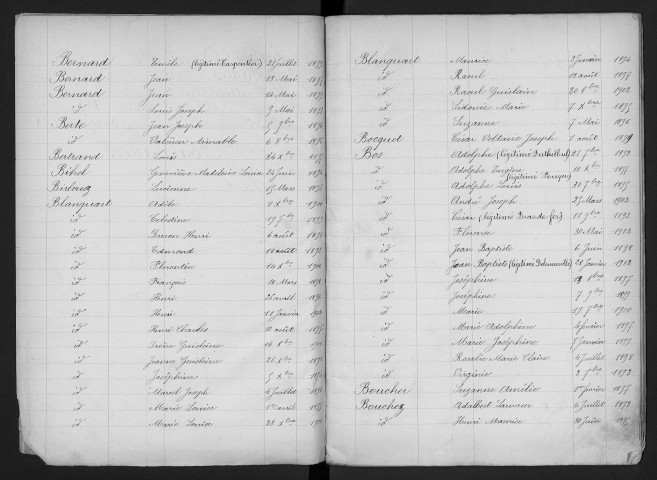 Bernard Emile (légitimé Carpentier) 21 Juillet 1893
Bernard Jean 18 Mai
Bernard Jean 14 Mai
id Louis Joseph 9 Mai
Berte Jean Joseph 5 9bre
id Valéour Aimable 6 8bre
Bertrand Louis 24 8bre
Bihel Geneviève Madeleine Louise 24 Juin
Birlouez Lucienne 15 Mars
Blanquart Adèle 8 Xbre 1900
id Célestine 19 7bre
id Drieon Henri 6 août
id Edmond 11 août
id Florentin 14 Xbre
id François 10 Mars
id Henri 25 avril
id Henri 11 Janvier
id Henri Charles 10 août
id Irène Guislaine 16 8bre
id Jeanne Guislaine 25 Xbre
id Joséphine 5 Xbre
id Marcel Joseph 4 Juillet
id Marie Louise 1er avril
id Marie Louise 28 Xbre
Blanquart Maurice 2 Janvier 1894
id Raoul 12 août 1896
id Raoul Guislain 20 8bre 1902
id Sidonie Marie 7 Xbre 1895
id Suzanne 7 Mai 1896
Bocquet César Voltaire Joseph 1 août 1899
Bos Adolphe (légitimé Duthilleul) 23 7bre 1893
id Adolphe Eugène 10 Xbre 1896
id Adolphe Louis (légitimé Pouque) 20 7bre 1895
id André Joseph 25 Mars 1902
id César (légitimé Bras de fer) 11 9bre 1893
id Florence 30 Mai 1902
id Jean Baptiste 6 Juin 1898
id Jean Baptiste (légitimé Delmeuville) 28 Janvier 1902
id Joséphine 19 8bre 1897
id Joséphine 7 9bre 1899
id Marie 19 7bre 1900
id Marie Adolphine 4 février 1897
id Marie Joséphine 7 Janvier 1899
id Rosalie Marie Claire 4 Juillet 1898
id Virginie 2 7bre 1893
Boucher Suzanne Amélie 1er février 1897
Bouchez Adalbert Lameur 6 Juillet 1893
id Henri Maurice 30 Juin